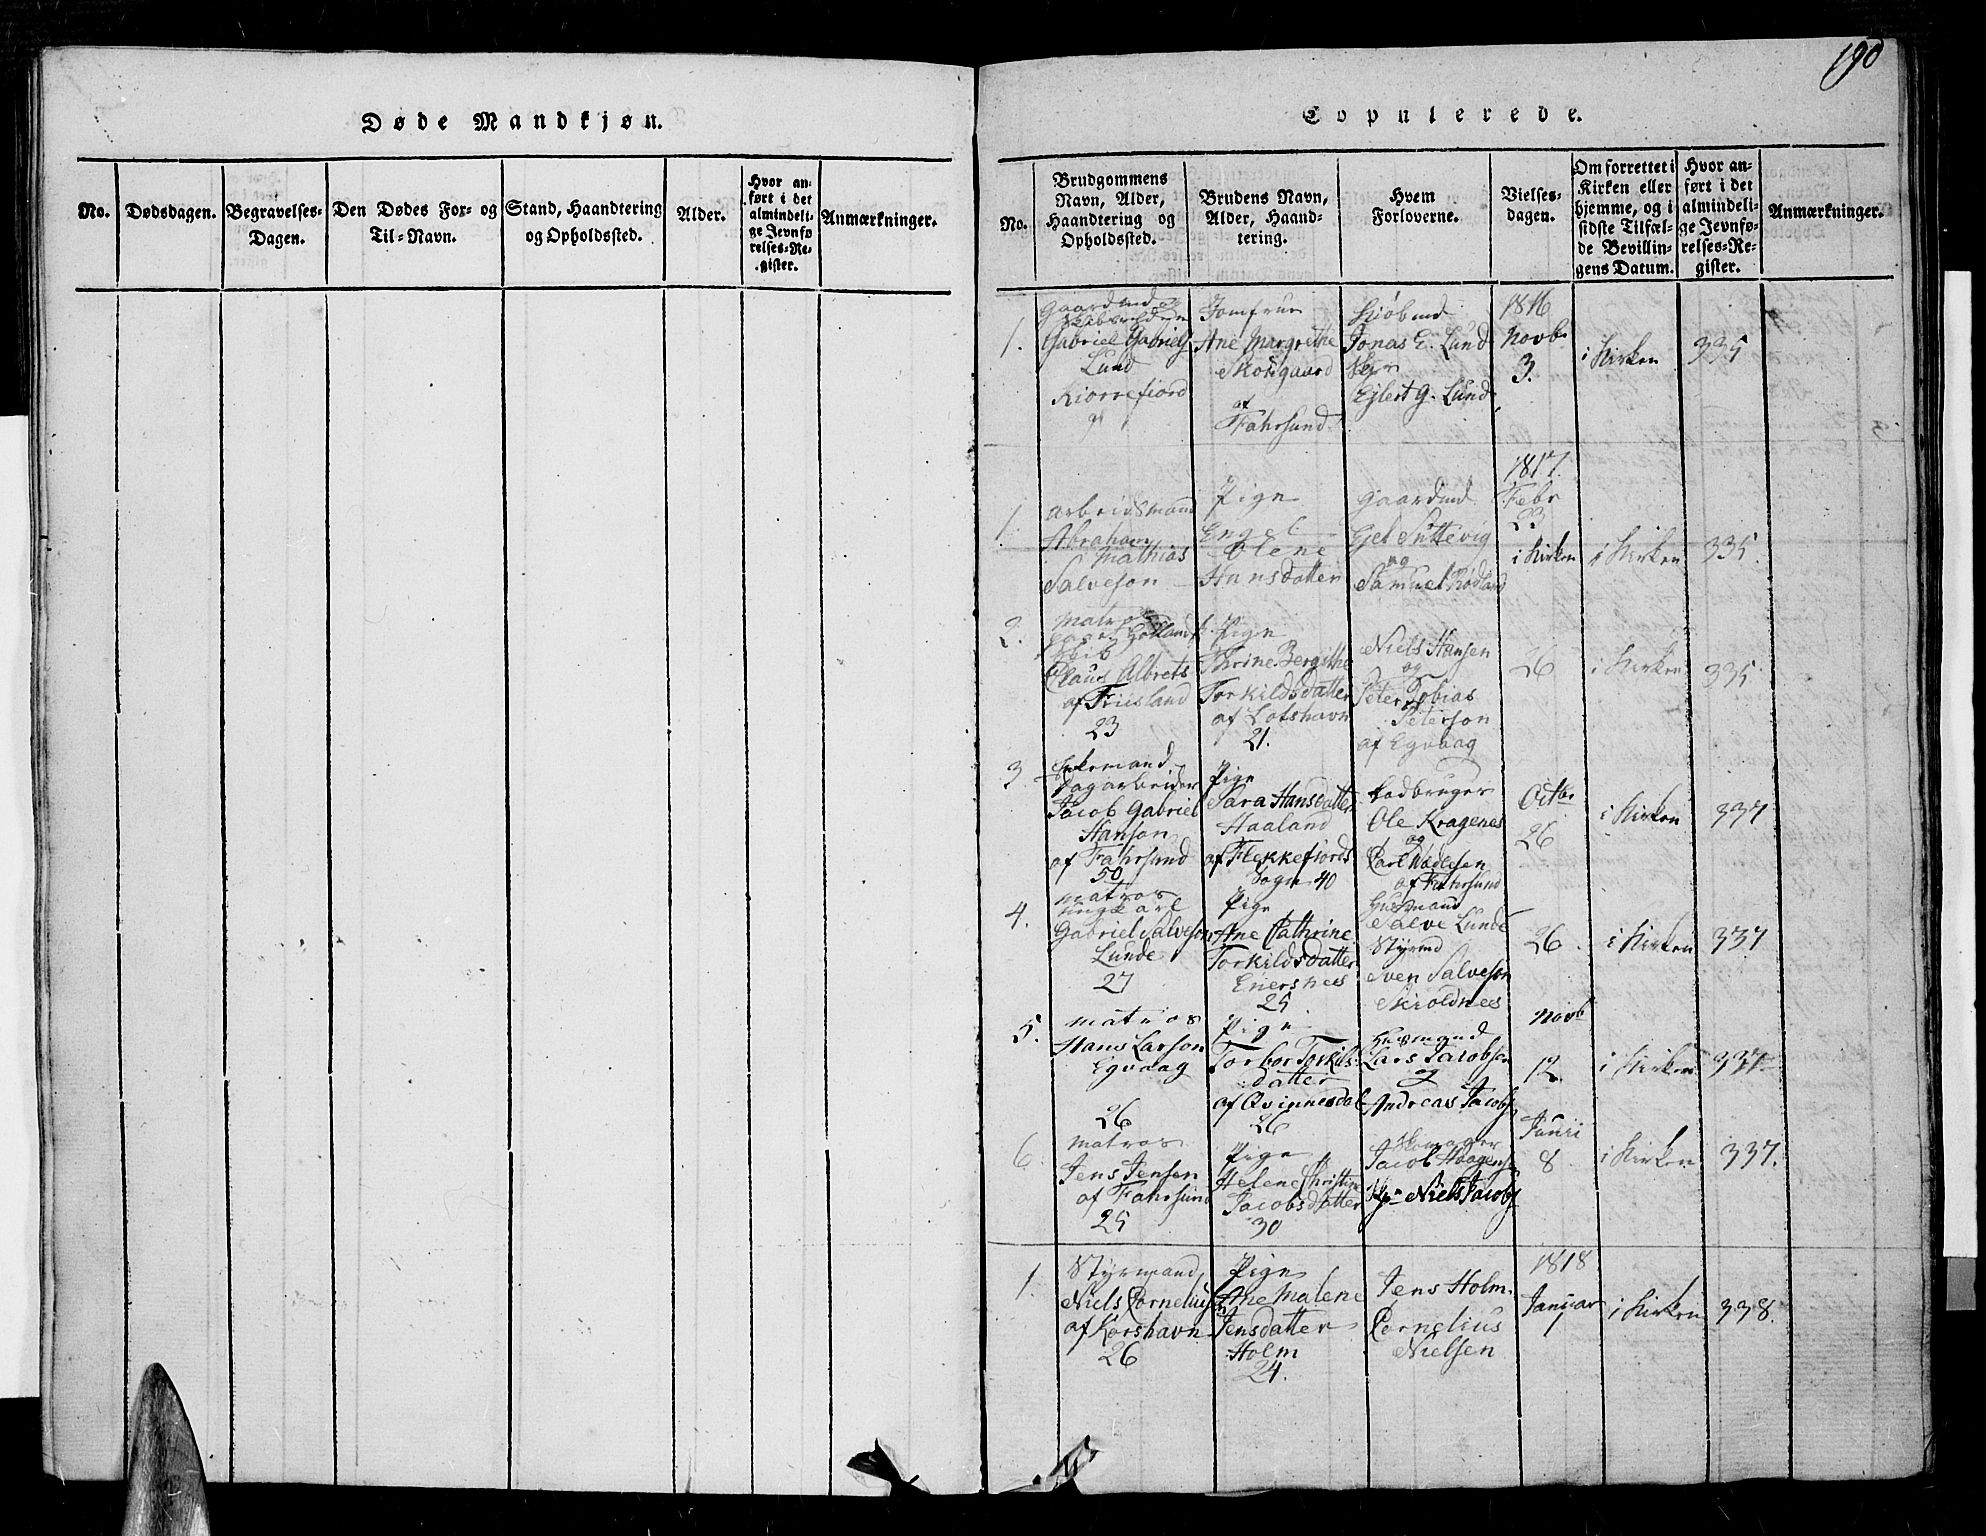 190
Døde Mandkjøn.
No.
Dødsdagen.
Begravelses-
Dagen.
Den Dødes For- og
Til-Navn.
Stand, Haandtering
og Opholdssted.
Alder.
Hvor an-
ført i det
almindeli-
ge Jevnfø-
relses-Re-
gister.
Anmærkninger.
Copulerede.
No.
Brudgommens
Navn, Alder,
Haandtering og
Opholdssted.
Brudens Navn,
Alder, Haand-
tering.
Hvem
Forloverne.
Vielses-
dagen.
Om forrettet i
Kirken eller
hjemme, og i
sidste Tilfæl-
de Bevillin-
gens Datum.
Hvor an-
ført i det
almindeli-
ge Jevnfø-
relses-Re-
gister.
Anmærkninger.
1.
Gaardmd og
Gabriel Gabriels
Lund
Kiørrefiord
Jomfrue
Ane Margrethe
Skousgaard
af
Fahrsund
Kiøbmd
Jonas E. Lund
Ejlert G. Lund
1816
Novbr
3.
i Kirken
335
1.
Arbeidsmand
Abraham
Mathias
Salveson
Pige
Engel
Olene
Hansdatter
Gaardmd
Gjel Sittevig
og
Samuel Rødland
1817.
Febr
23
i Kirken
i Kirken
335.
2.
Matros
Skib
Claus Albrets
af Friesland
23
Pige
Thrine Bergithe
Torkildsdatter
af Lotshavn
21.
Niels Hansen
og
Peter Tobias
Peterson
af Egvaag
26
i Kirken
335.
3
Enkemand
Dagarbeider
Jacob Gabriel
Hanson
af Fahrsund
50
Pige
Sara Hansdatter
Haaland
af Flekkefiords
Sogn 40
Ole Kragenes
og
Carl Wadesen
af Fahrsund
Octbr
26
i Kirken
337
4.
Matros
Ungkarl
Gabriel Salveson
Lunde
27
Pige
Ane Cathrine
Torkildsdatter
Enersnees
25
Husmand
Salve Lunde
Styrmd
Sven Salveson
Skioldnees
26.
i Kirken
337
5.
Matros
Hans Larson
Egvaag
26
Pige
Torbor Torkils-
datter
af Qvinnesdal
26
Husmand
Lars Jacobsen
Andreas Jacobs
Novb
12.
i Kirken
337
6.
Matros
Jens Jensen
af Fahrsund
25
Pige
Helene Christine
Jacobsdatter
30
Skomager
Jacob Haagens
Niels Jacobs
Juni
8
i Kirken
337.
1.
Styrmand
Niels Cornelius
af Korshavn
26
Pige
Ane Malene
Jensdatter
Holm
24.
Jens Holm
Cornelius
Nielsen
1818
Januar
1
i Kirken
338.